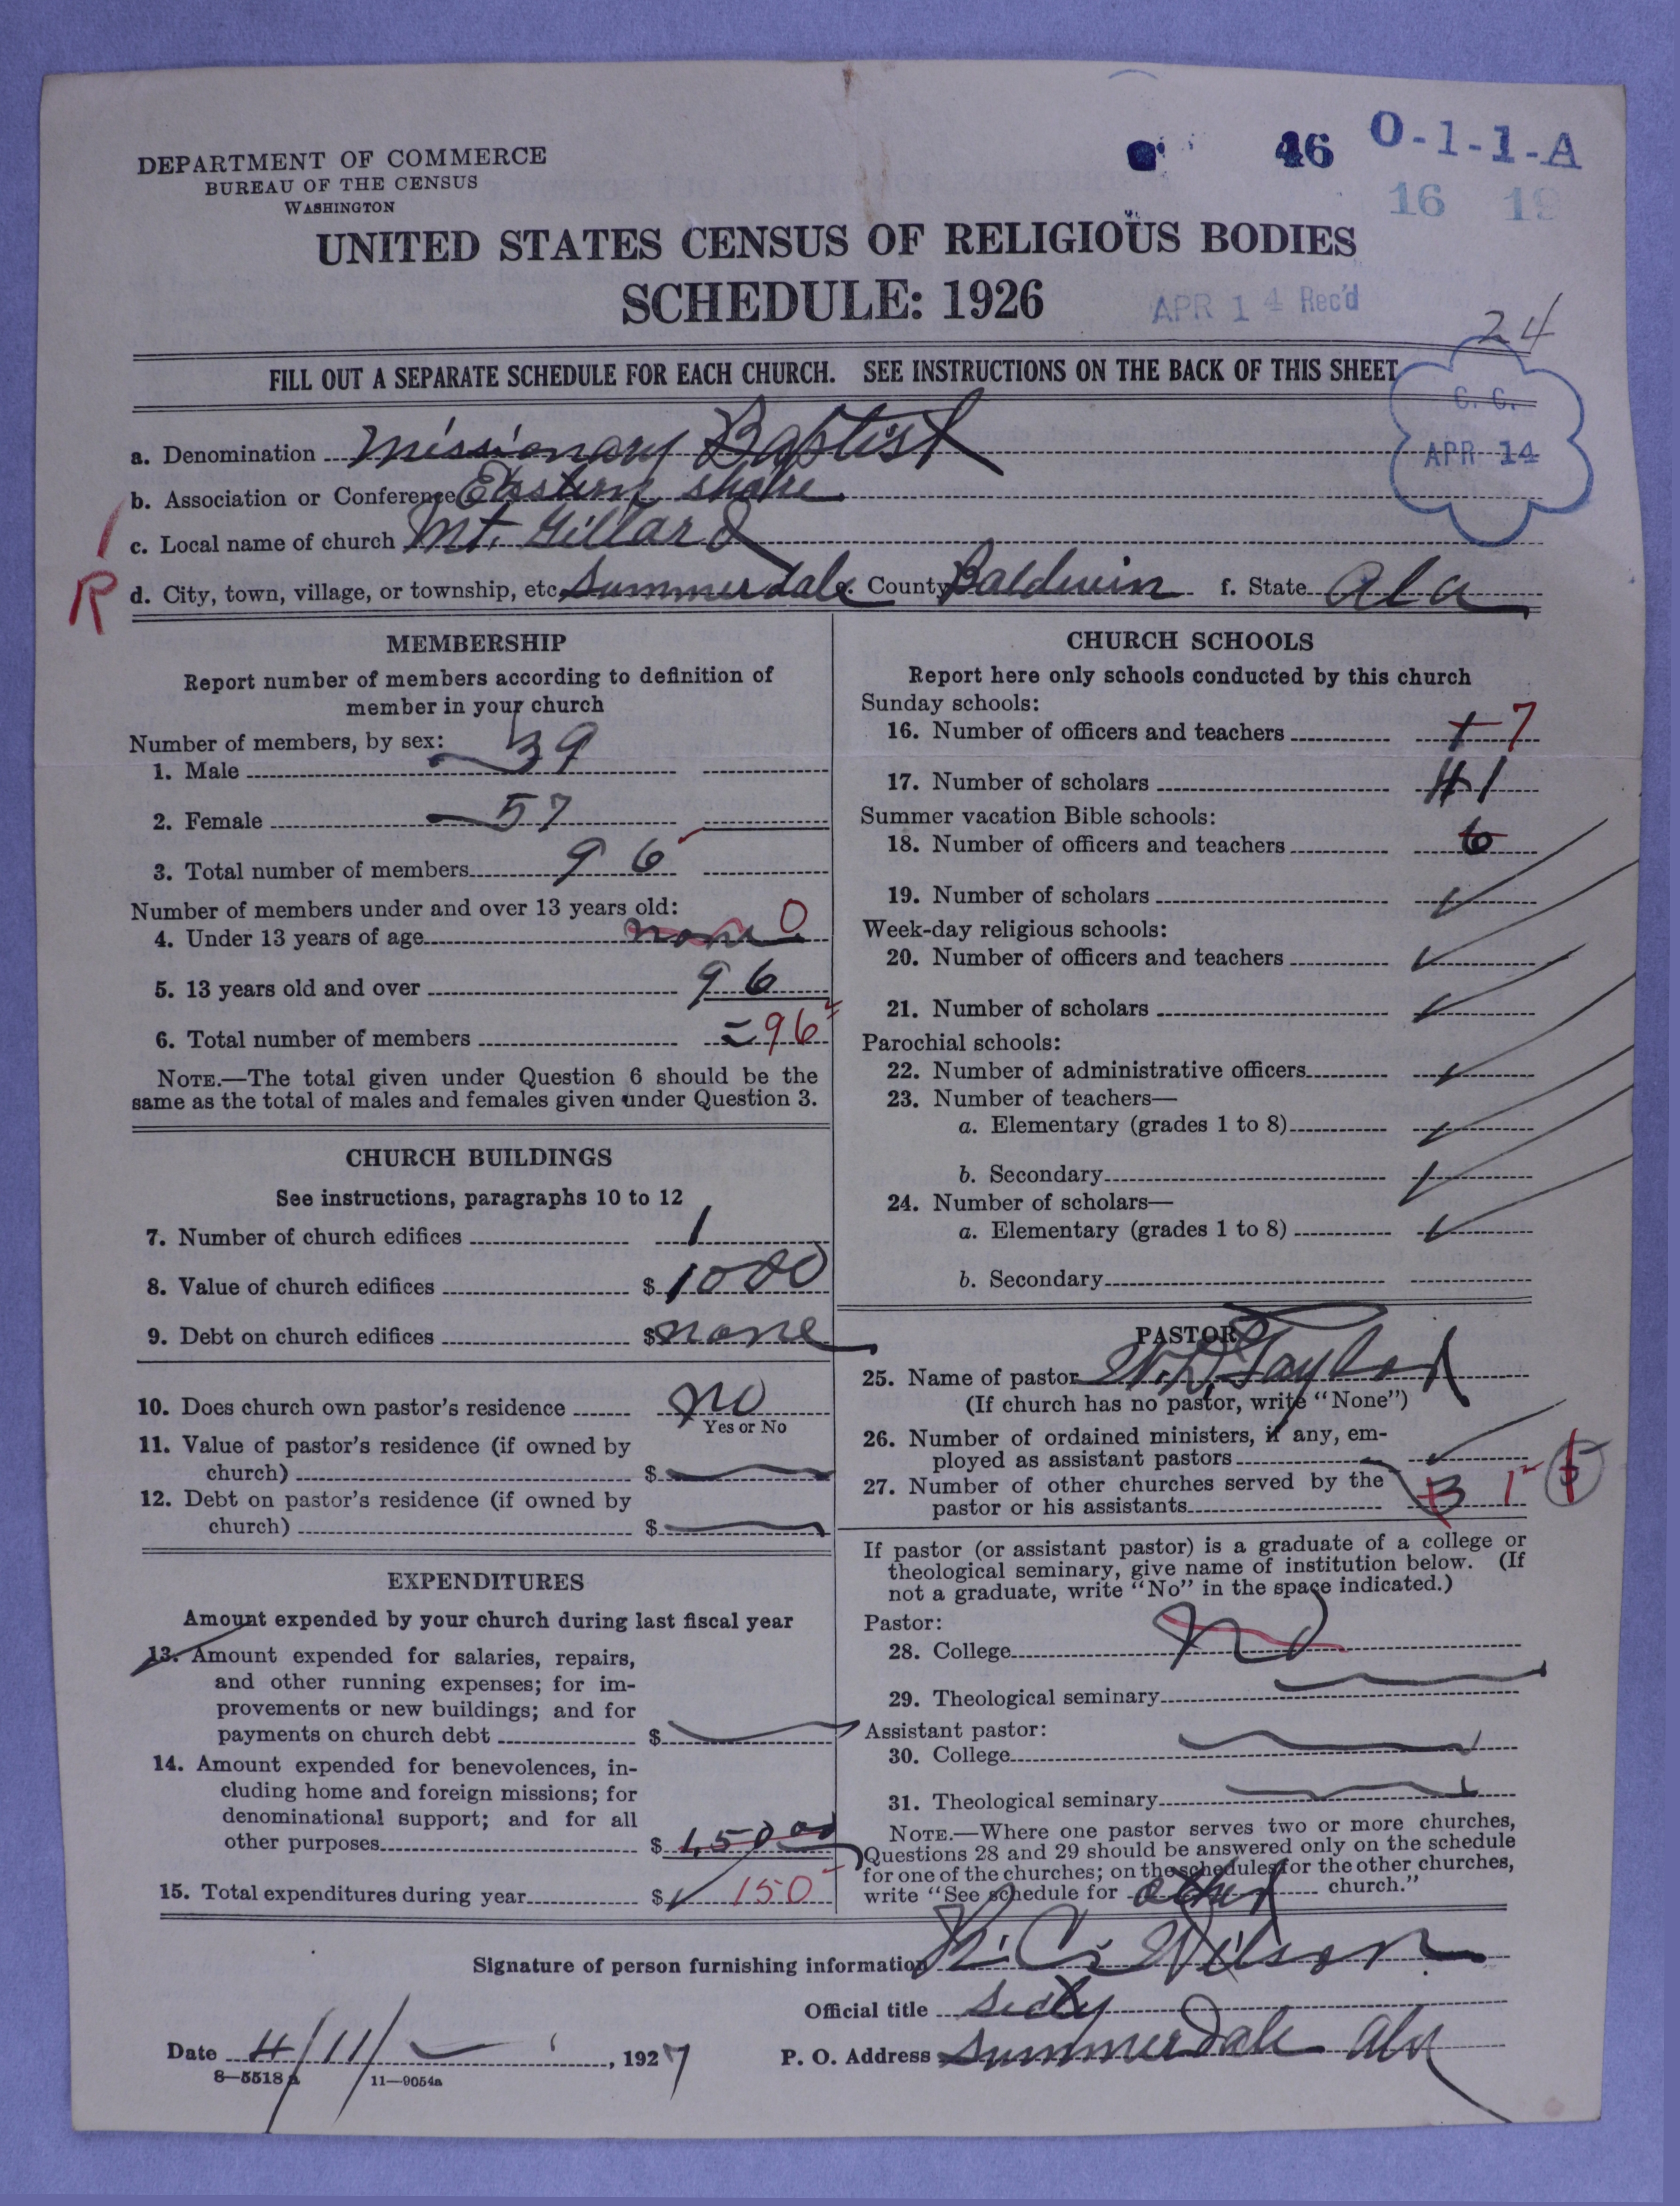 DEPARTMENT OF COMMERCE
BUREAU OF THE CENSUS
WASHINGTON
46 O-1-1-A
16 19
UNITED STATES CENSUS OF RELIGIOUS BODIES
SCHEDULE: 1926
APR 14 Rec'd
24
FILL OUT A SEPARATE SCHEDULE FOR EACH CHURCH. SEE INSTRUCTIONS ON THE BACK OF THIS SHEET
C. C.
APR 14
a. Denomination Missionary Baptist
b. Association or Conference Eastern shore
c. Local name of church Mt. Gillard
R d. City, town, village, or township, etc. Summerdale County Baldwin f. State Ala
MEMBERSHIP
Report number of members according to definition of
member in your church
Number of members, by sex:
1. Male 39
2. Female 57
3. Total number of members 96
Number of members under and over 13 years old:
4. Under 13 years of age none 0
5. 13 years old and over 96
6. Total number of members 96
NOTE.—The total given under Question 6 should be the
same as the total of males and females given under Question 3.
CHURCH BUILDINGS
See instructions, paragraphs 10 to 12
7. Number of church edifices 1
8. Value of church edifices $ 1000
9. Debt on church edifices $ none
10. Does church own pastor's residence no
Yes or No
11. Value of pastor's residence (if owned by
church) $
12. Debt on pastor's residence (if owned by
church) $
EXPENDITURES
Amount expended by your church during last fiscal year
13. Amount expended for salaries, repairs,
and other running expenses; for im-
provements or new buildings; and for
payments on church debt $
14. Amount expended for benevolences, in-
cluding home and foreign missions; for
denominational support; and for all
other purposes $ 150.00
15. Total expenditures during year $ 150
CHURCH SCHOOLS
Report here only schools conducted by this church
Sunday schools:
16. Number of officers and teachers 7
17. Number of scholars 41
Summer vacation Bible schools:
18. Number of officers and teachers 6
19. Number of scholars
Week-day religious schools:
20. Number of officers and teachers
21. Number of scholars
Parochial schools:
22. Number of administrative officers
23. Number of teachers—
a. Elementary (grades 1 to 8)
b. Secondary
24. Number of scholars—
a. Elementary (grades 1 to 8)
b. Secondary
PASTOR
25. Name of pastor W. D. Taylor
(If church has no pastor, write "None")
26. Number of ordained ministers, if any, em-
ployed as assistant pastors
27. Number of other churches served by the
pastor or his assistants 3 1
If pastor (or assistant pastor) is a graduate of a college or
theological seminary, give name of institution below. (If
not a graduate, write "No" in the space indicated.)
Pastor:
28. College no
29. Theological seminary
Assistant pastor:
30. College
31. Theological seminary
NOTE.—Where one pastor serves two or more churches,
Questions 28 and 29 should be answered only on the schedule
for one of the churches; on the schedules for the other churches,
write "See schedule for other church."
Signature of person furnishing information K. C. Wilson
Official title
Date 4/11/ , 1927 P. O. Address Summerdale Ala
8—5518a 11—9054a